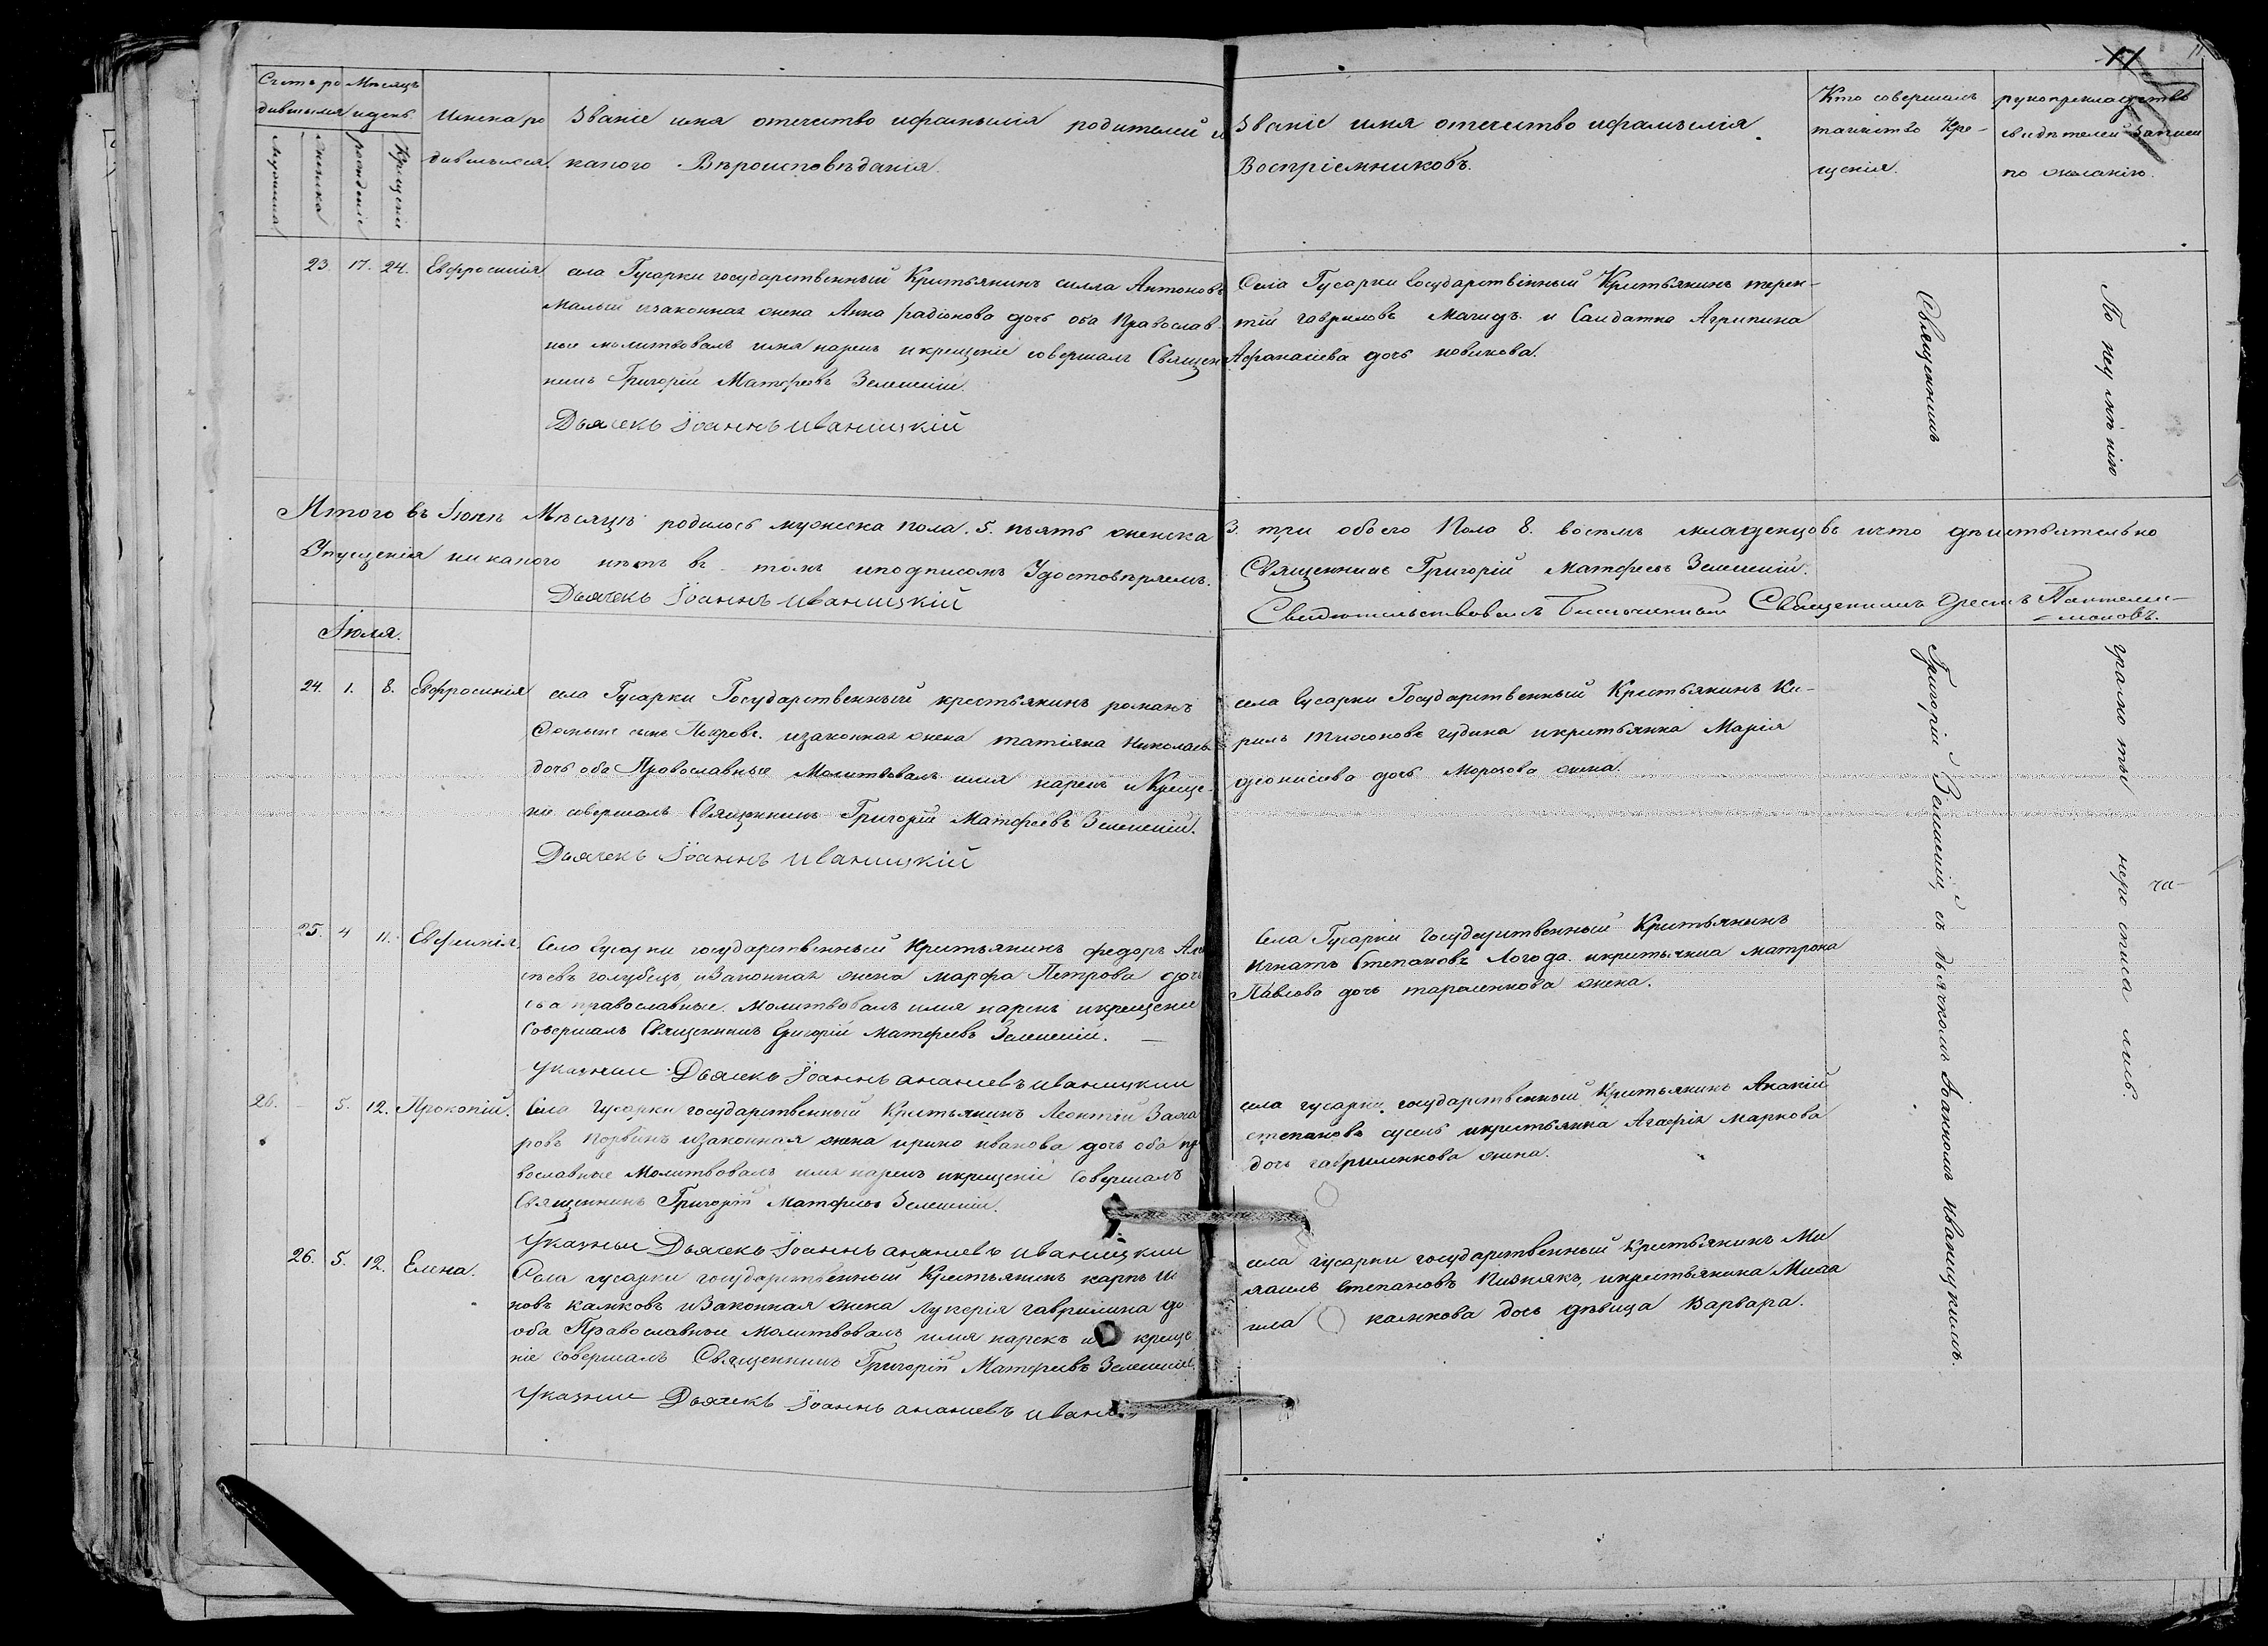 11
Счетъ ро
дившихся
Мѣсяцъ
и день
мужеска
женска
рожденіе
Крещеніе
Имена ро
дившихся.
Званіе имя отечество ифамылія родителей и
какого Вѣроисповѣданія.
Званіе имя отечество ифамылія
Воспріемниковъ.
Кто совершалъ
таинство Кре-
щенія.
рукоприкладство
свидѣтелей записи
по желанію.
23. 17. 24. Евфросинія
села Гусарки государственный Кристьянинъ силла Антоновъ
Малый изаконная жена Анна радіонова дочь оба Православ-
ные молитвовалъ имя нарекъ икрещеніе совершалъ Священ
никъ Григорій Матфеевъ Зеленскій.
Дьячекъ Іоаннъ иваницкій
Села Гусарки Государственный Кристьянинъ терен-
тій гавриловъ и Салдатка Агрипина
Афанасіева дочь новикова.
Итого въ Іюнѣ Мѣсяцѣ родилось мужеска пола. 5. пъять женска 3. три обоего Пола 8. восемъ младенцовъ ичто дѣиствительно
Упущенія никакого нѣтъ въ томъ иподписомъ Удостовѣряемъ. Священникъ Григорій Матфеевъ Зеленскій.
Дьячекъ Іоаннъ иваницкій
Свидѣтельствовалъ Благочинный Священникъ Орестъ Пантелеи-
моновъ.
Іюля.
24. 1. 8. Евфросинія
села Гусарки Государственный крестьянинъ романъ
сынъ изаконная жена татіяна Николаева
дочь оба Провославные Молитвовалъ имя нарекъ и Креще-
ніе совершалъ Священникъ Григорій Матфеевъ Зеленскій.
Дьячекъ Іоаннъ иваницкій
села Гусарки Государственный Кристьянинъ Ки-
рилъ Тихоновъ гудина икристьянка Марія
дионисіева дочь Морозова жена.
25. 4 11. Евфимія.
Села Гусарки государственный Кристьянинъ федоръ Але
сѣевъ голубецъ изаконная жена марфа Петрова дочь
оба православные. Молитвовалъ имя нарекъ икрещеніе
Совершалъ Священникъ Григорій Матфеевъ Зеленскій.
Указный Дьячекъ Іоаннъ ананиевъ иваницкий
Села Гусарки Государственный Кристьянинъ
Игнатъ Степановъ Логода. икристьянка матрона
Павлова дочь тарасенкова жена.
26. 5. 12. Прокопій.
Села Гусарки государственный Кристьянинъ Леонтій Заха
ровъ изаконная жена ирина иванова дочь оба пр
вославные Молитвовалъ имя нарекъ икрещеніе Совершалъ
Священникъ Григорій Матфеевъ Зеленскій.
Указный Дьячекъ Іоаннъ ананиевъ иваницкий
села гусарки государственный Кристьянинъ Акакій
степановъ сусель икристьянка Агафія Маркова
дочь гавриленкова жена.
26. 5. 12. Елена.
Села гусарки государственный Кристьянинъ карпъ
новъ калюковъ изаконная жена Лукерія гаврилина до
оба Православные Молитвовалъ имя нарекъ и креще
ніе совершалъ Священникъ Григорій Матфеевъ Зеленскій
Указный Дьячекъ Іоаннъ ананиевъ ивани
села гусарки государственный Кристьянинъ Ми
хаилъ Степановъ Пизнякъ, икристьянина Миха
ила калюкова дочь дѣвица Варвара.
Священникъ
Григорій Зеленскій, съ дьячкомъ Іоанномъ иваницкимъ.
По неумѣнію
грамоты нерописа ча-
лись.